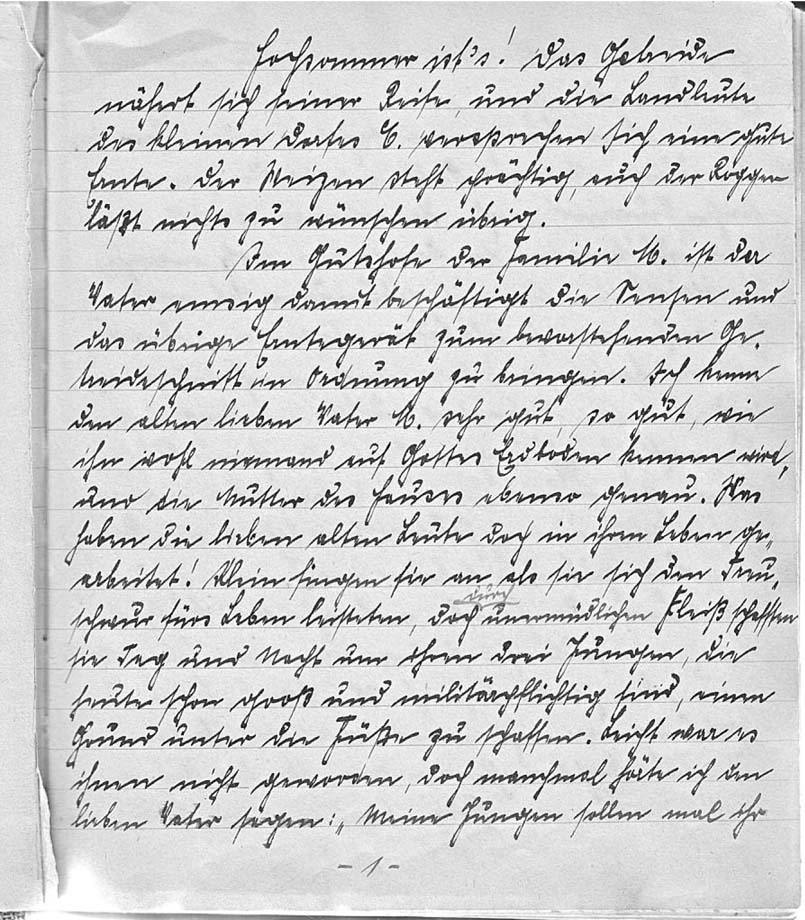 Hochsommer ist's! Das Getreide
nähert sich seiner Reife, und die Landleute
des kleinen Dorfes C. versprechen sich eine gute
Ernte. Der Weizen steht prächtig, auch der Roggen
läßt nichts zu wünschen übrig.
Im Gutshofe der Familie M. ist der
Vater emsig damit beschäftigt die Sensen und
das übrige Erntegerät zum bevorstehenden Ge-
treideschnitt in Ordnung zu bringen. Ich kenne
den alten lieben Vater M. sehr gut, so gut, wie
ihn wohl niemand auf Gottes Erdboden kennen wird,
und die Mutter des Hauses ebenso genau. Was
haben die lieben alten Leute doch in ihrem Leben ge-
arbeitet! Klein fingen sie an, als sie sich den Treu-
schwur fürs Leben leisteten, doch
durch
unermüdlichen Fleiß schafften
sie Tag und Nacht um ihren drei Jungen, die
heute schon groß und militärpflichtig sind, einen
Grund unter die Füße zu schaffen. Leicht war es
ihnen nicht geworden, doch manchmal hörte ich den
lieben Vater sagen: „Meine Jungen sollen mal ihr
- 1 -